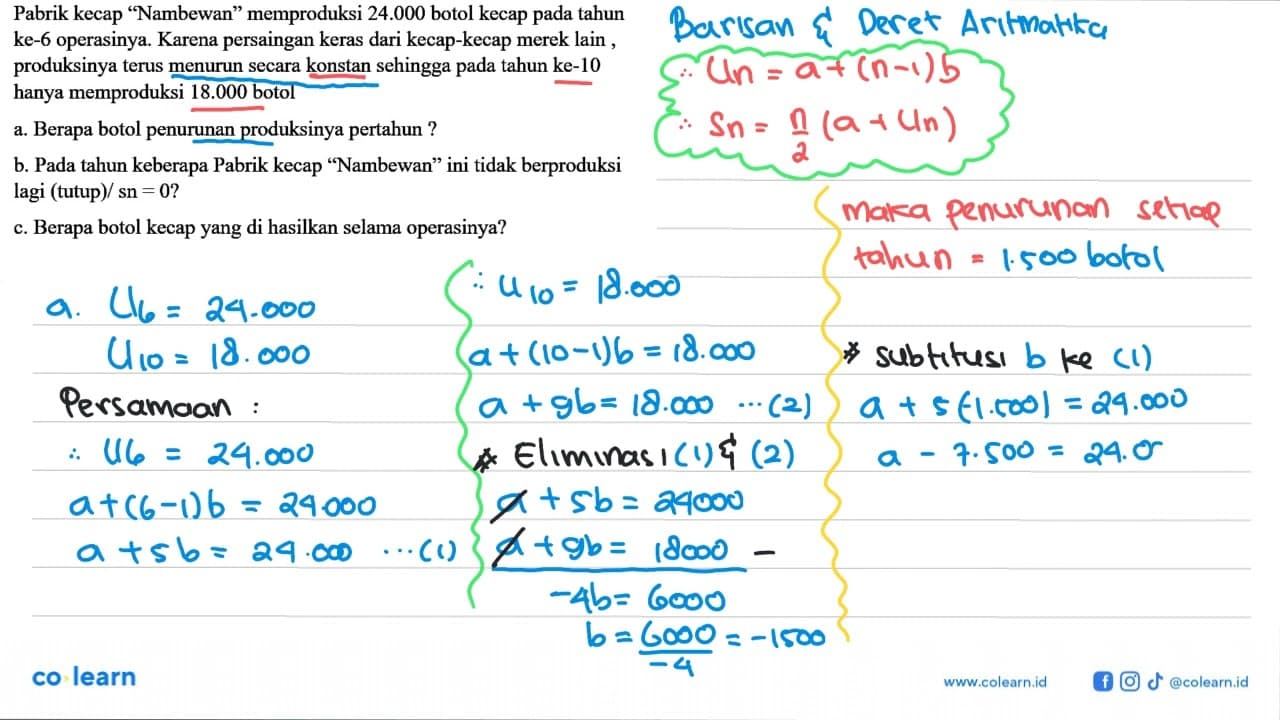 Pabrik kecap “Nambewan” memproduksi 24.000 botol kecap pada tahun
ke-6 operasinya. Karena persaingan keras dari kecap-kecap merek lain ,
produksinya terus menurun secara konstan sehingga pada tahun ke-10
hanya memproduksi 18.000 botol
a. Berapa botol penurunan produksinya pertahun ?
b. Pada tahun keberapa Pabrik kecap “Nambewan” ini tidak berproduksi
lagi (tutup)/ sn = 0?
c. Berapa botol kecap yang di hasilkan selama operasinya?
Barisan & Deret Aritmatika
∴ Un = a + (n-1)b
∴ Sn = n/2 (a + Un)
a. U6 = 24.000
U10 = 18.000
Persamaan :
∴ U6 = 24.000
a+(6-1)b = 24.000
a +5b = 24.000 ...(1)
∴ U10 = 18.000
a+(10-1)b = 18.000
a + 9b = 18.000 ...(2)
* Eliminasi (1) & (2)
a + 5b = 24000
a + 9b = 18000 -
-4b = 6000
b = 6000/-4 = -1500
maka penurunan setiap
tahun = 1.500 botol
* subtitusi b ke (1)
a + 5(-1.500) = 24.000
a - 7.500 = 24.0
co learn
www.colearn.id
@colearn.id